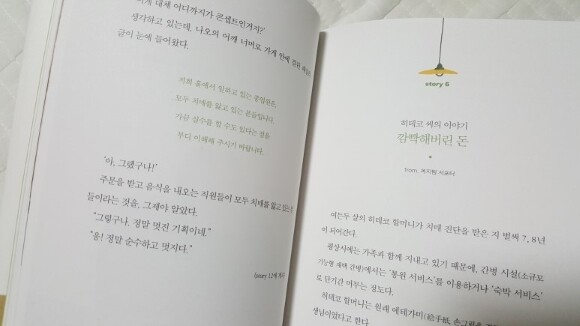 이게 대체 어디까지가 콘셉트인거지?'
생각하고 있는데, 나오의 어깨 너머로 가게 안에 걸린
글이 눈에 들어왔다.
저희 홀에서 일하고 있는 종업원은,
모두 치매를 앓고 있는 분들입니다.
가끔 실수를 할 수도 있다는 점을
부디 이해해 주시기 바랍니다.
'아, 그랬구나!'
주문을 받고 음식을 내오는 직원들이 모두 치매를 앓고 있는
들이라는 것을, 그제야 알았다.
"그렇구나, 정말 멋진 기획이네."
"응! 정말 순수하고 멋지다."
(story 12에 계속)
story 6
히데코 씨의 이야기
깜빡해버린 돈
from. 복지팀 서포터
여든두 살의 히데코 할머니가 치매 진단을 받은 지 벌써 7, 8년
이 되어간다.
평상시에는 가족과 함께 지내고 있기 때문에, 간병 시설(소규모
기능형 재택 간병)에서는 '통원 서비스'를 이용하거나 '숙박 서비스'
로 단기간 머무는 정도다.
히데코 할머니는 원래 에테가미(絵手紙, 손그림을
생님이었다고 한다.